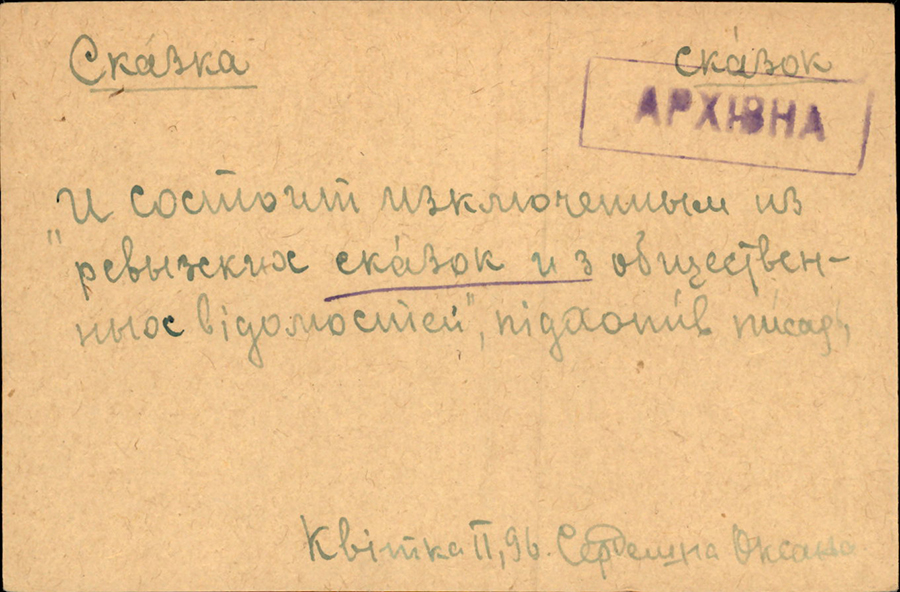 Сказка
ска́зок
АРХІВНА
И состоит изключенным из
"ревызких ска́зок и з обществен-
ных відомостей", підхопи́в пи́сарь
Квітка II, 96. Сердешна Оксана